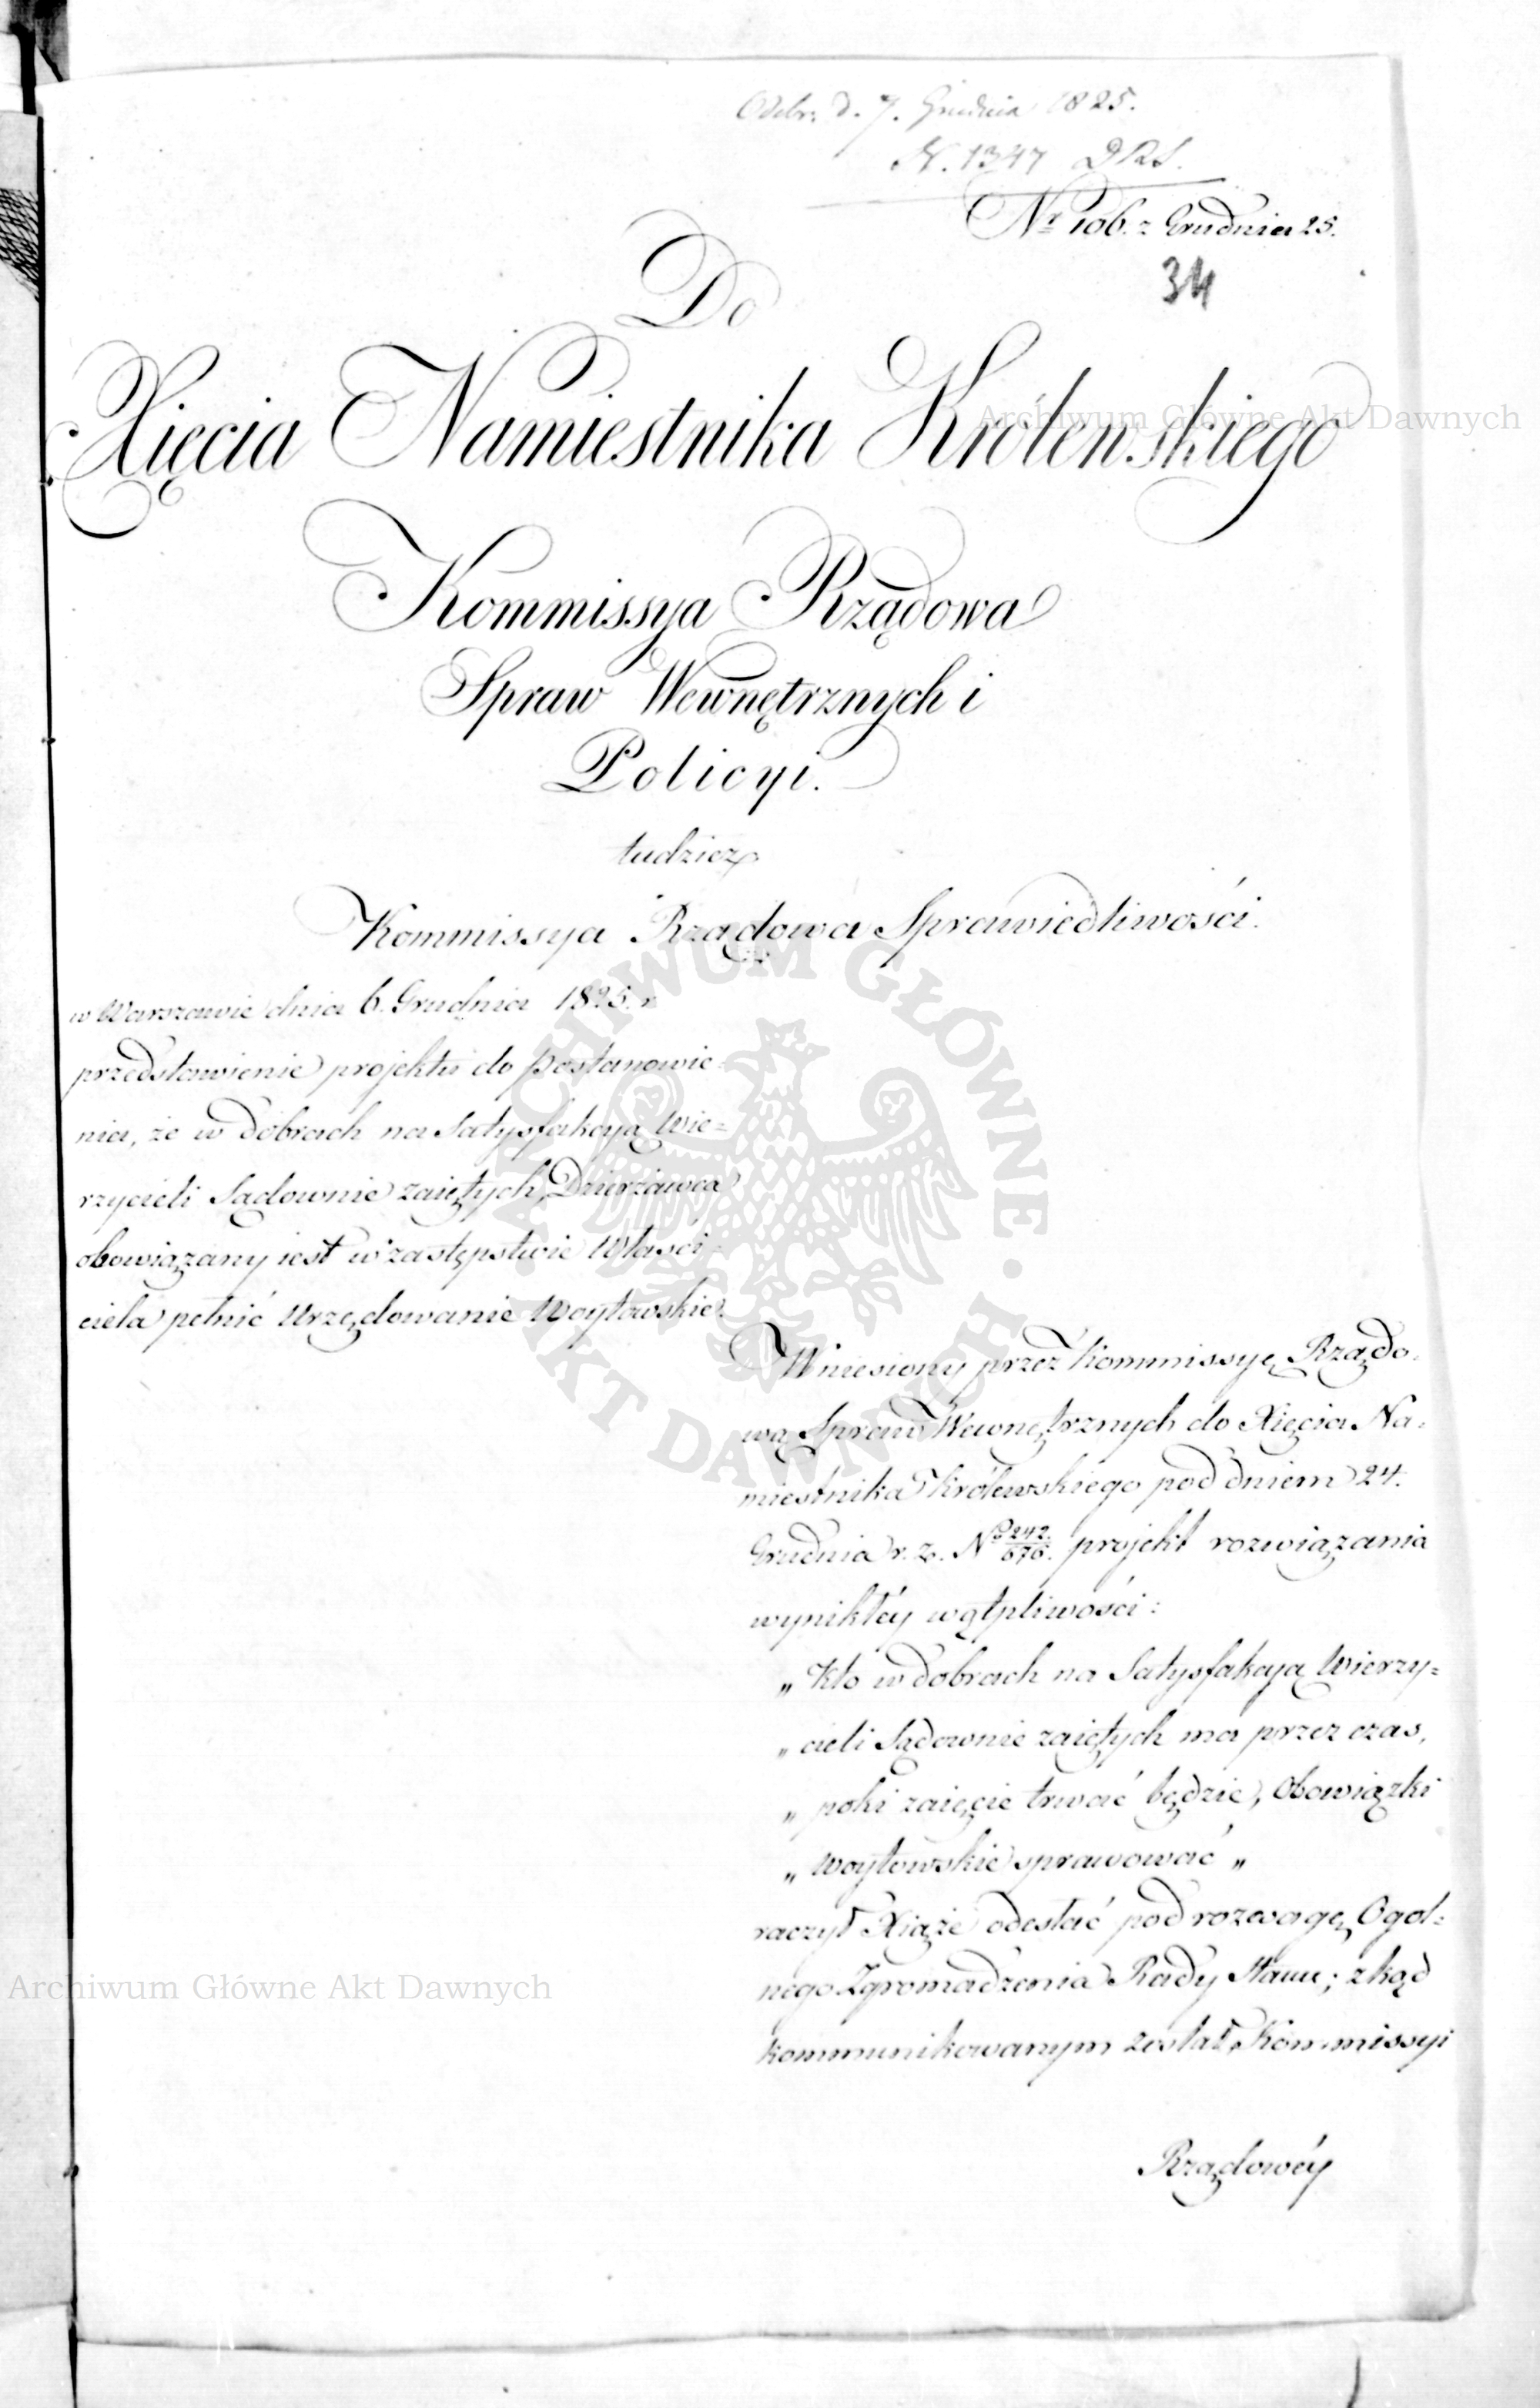 Odebr. d. 7. Grudnia 1825.
N. 1347 DRS.
Nr 106. z Grudnia 25.
34
Do
Xięcia Namiestnika Królewskiego
Kommissya Rządowa
Spraw Wewnętrznych i
Policyi.
tudzież
Kommissya Rządowa Sprawiedliwości.
w Warszawie dnia 6. Grudnia 1825. r.
przedstawienie projektu do postanowie-
nia, że w dobrach na Satysfakcyą Wie=
rzycieli Sądownie zaiętych, Dzierżawca
obowiązany iest w zastępstwie Właści-
ciela pełnić Urzędowanie Woytowskie.
Wniesiony przez Kommissyę Rządo-
wą Spraw Wewnętrznych do Xięcia Na-
miestnika Królewskiego pod dniem 24.
Grudnia r. z. No 242./676. projekt rozwiązania
wynikłéy wątpliwości:
„ Kto w dobrach na Satysfakcyą Wierzy=
„ cieli Sądownie zaiętych ma przez czas,
„ poki zaięcie trwać będzie, Obowiązki
„ Woytowskie sprawować „
raczył Xiąże odesłać pod rozwagę Ogol=
nego Zgromadzenia Rady Stanu; zkąd
kommunikowanym został Kommissyi
Rządowéy
Archiwum Główne Akt Dawnych
ARCHIWUM GŁÓWNE AKT DAWNYCH
Archiwum Główne Akt Dawnych